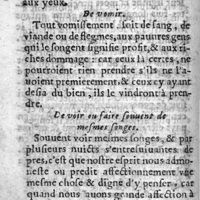 aux yeux.
De vomir.
Tout vomissement, soit de sang, de
viande ou de flegmes, aux pauures gens
qui le songent signifie profit, & aux ri-
ches dommage: car ceux là certes, ne
pourroient rien prendre s'ils ne l'a-
uoient premierement, & ceux cy ayant
desia du bien, ils le viendront à pren-
dre.
De voir ou faire souuent de
mesmes songes.
Souuent voir mesmes songes, & par
plusieurs nuicts s'entresuiuantes de
pres, c'est que nostre esprit nous admo-
neste ou predit affectionnement vne
mesme chose & digne d'y penser, car
quand nous auons grande affection à